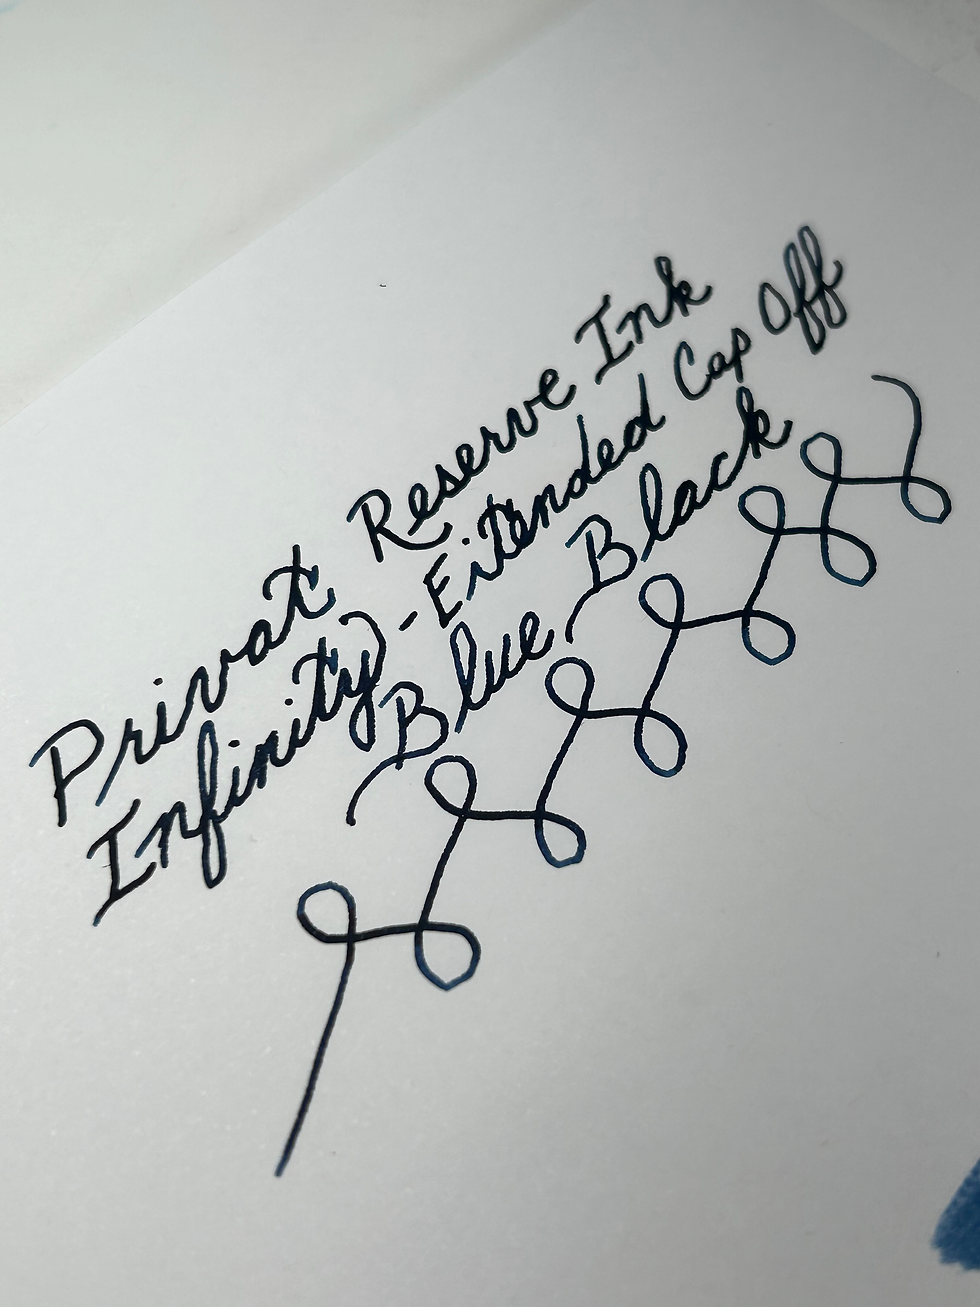 Privat Reserve Ink
Infinity - Eitended Cap Off
Blue Black